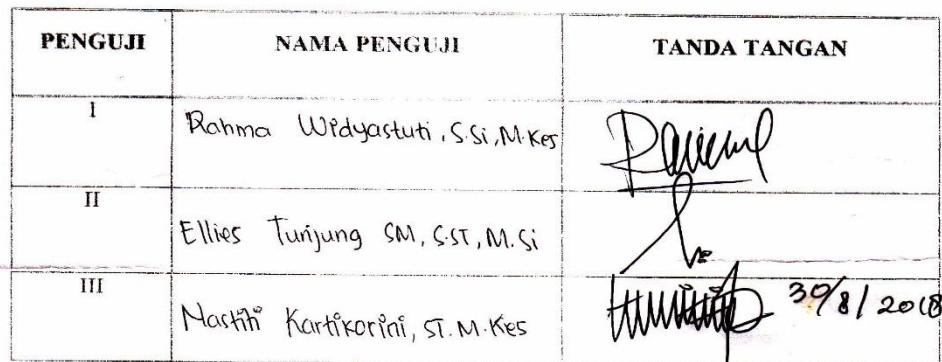 PENGUJI NAMA PENGUJI TANDA TANGAN
I Rahma Widyastuti, S.Si, M.Kes
II Ellies Tunjung SM, S.ST, M.Si
III Nastiti Kartikorini, ST. M.Kes 30/8/2018